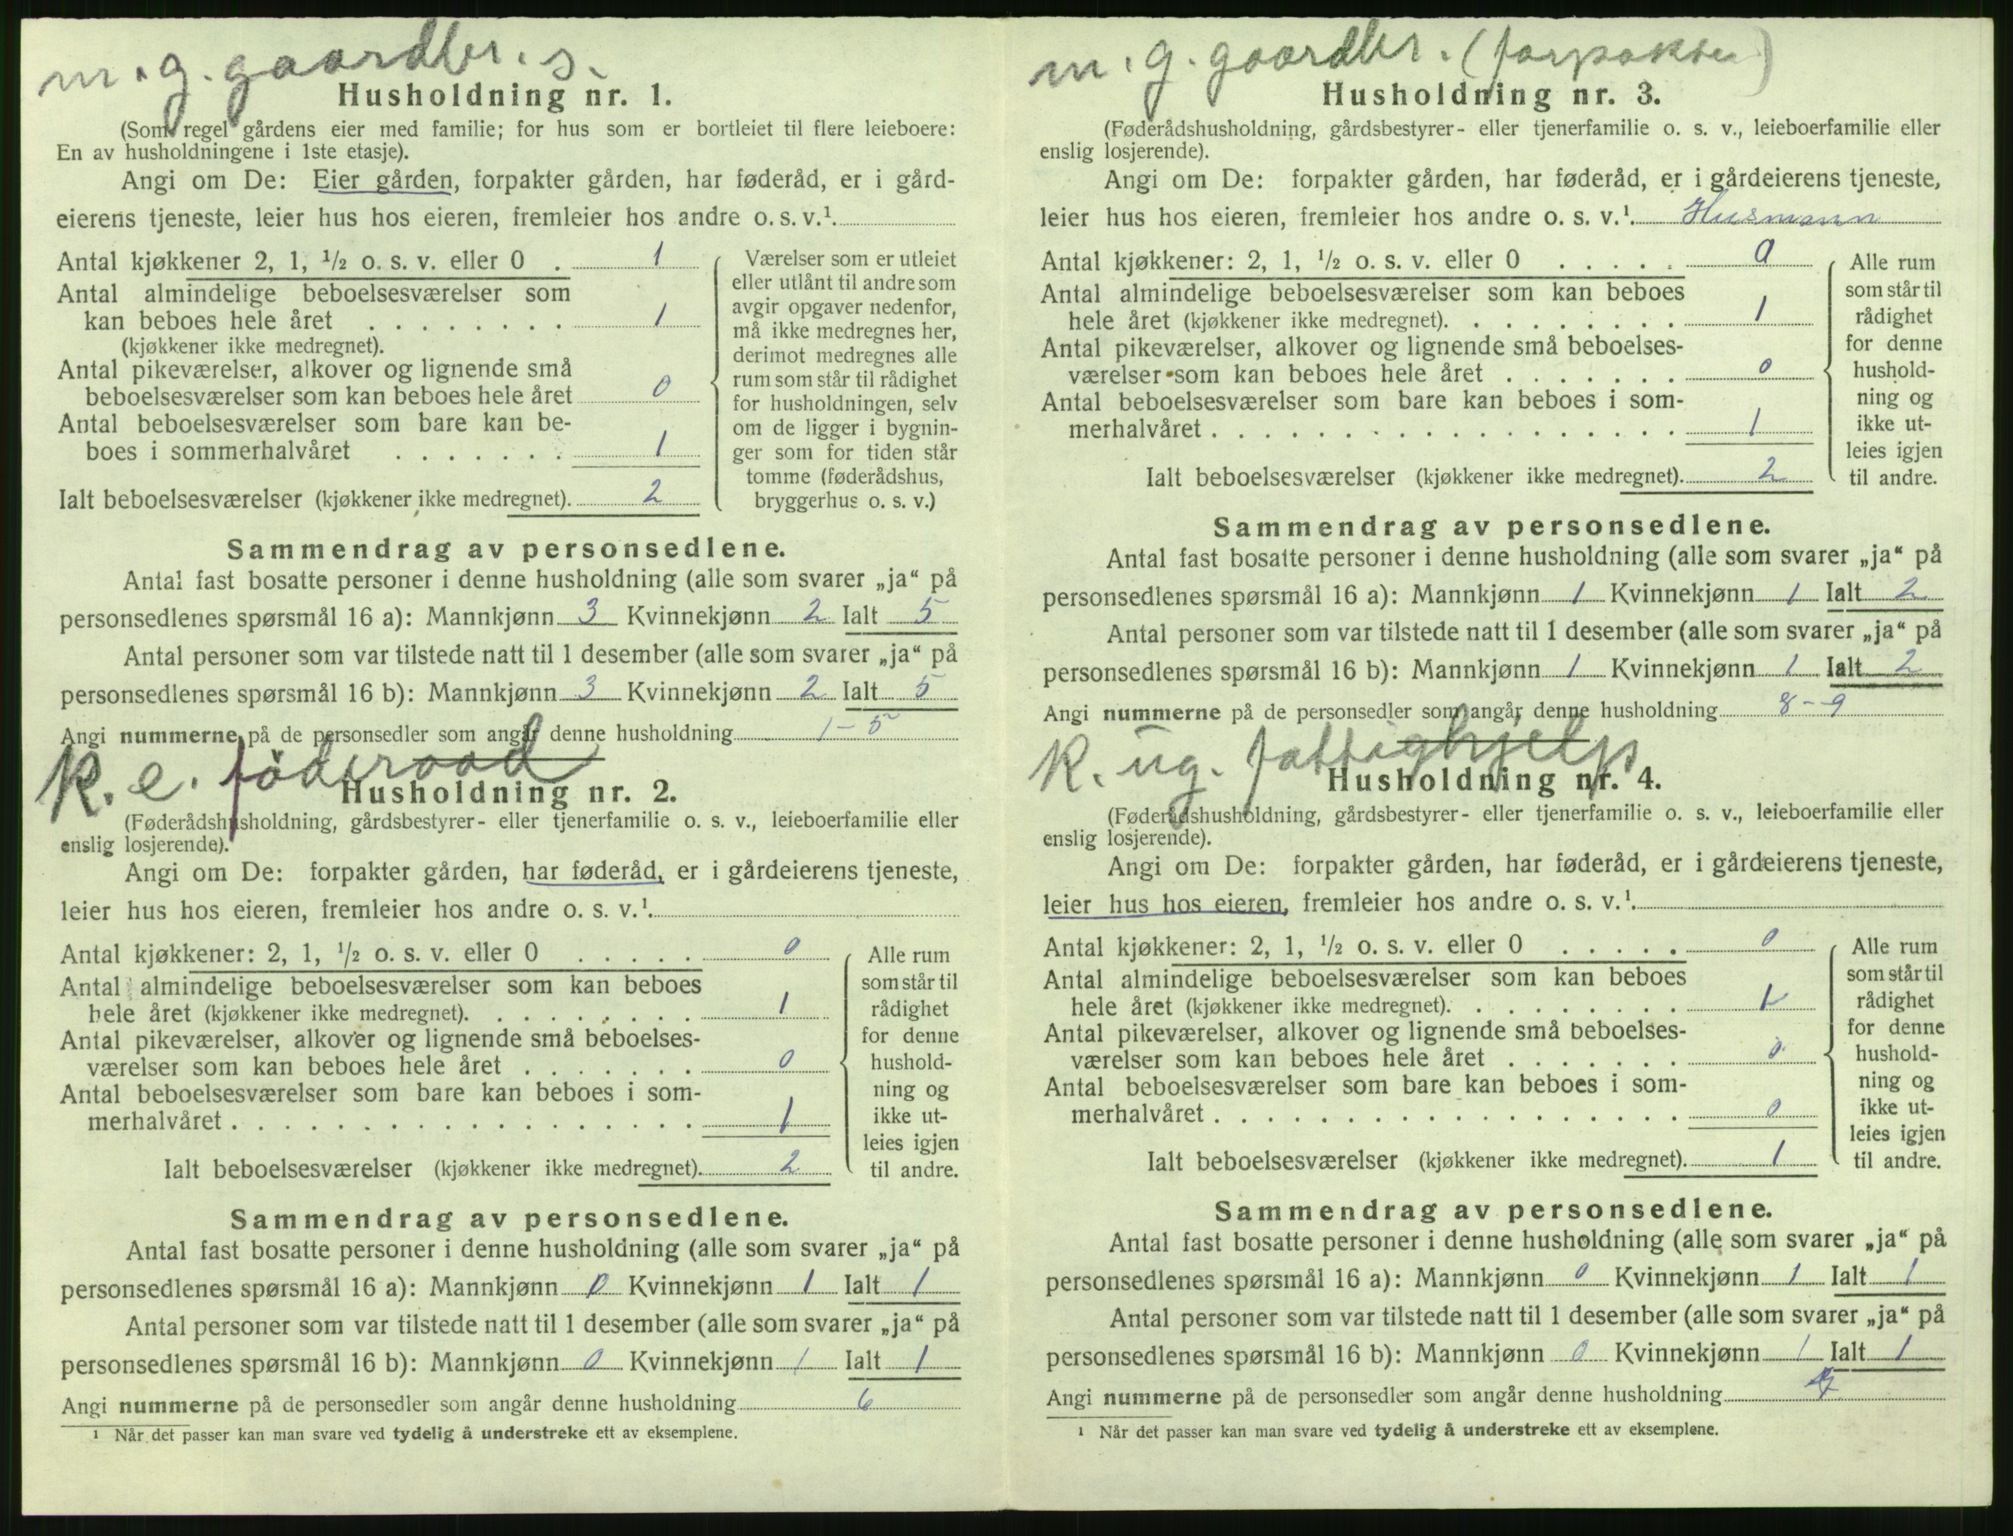 m. g. gaardbr. s.
Husholdning nr. 1.
(Som regel gårdens eier med familie; for hus som er bortleiet til flere leieboere:
En av husholdningene i 1ste etasje).
Angi om De: Eier gården, forpakter gården, har føderåd, er i gård-
eierens tjeneste, leier hus hos eieren, fremleier hos andre o. s. v.¹.
Antal kjøkkener 2, 1, ½ o. s. v. eller 0 . 1
Antal almindelige beboelsesværelser som
kan beboes hele året . . . . . . . . 1
(kjøkkener ikke medregnet).
Antal pikeværelser, alkover og lignende små
beboelsesværelser som kan beboes hele året 0
Antal beboelsesværelser som bare kan be-
boes i sommerhalvåret . . . . . . . 1
Ialt beboelsesværelser (kjøkkener ikke medregnet). 2
Værelser som er utleiet
eller utlånt til andre som
avgir opgaver nedenfor,
må ikke medregnes her,
derimot medregnes alle
rum som står til rådighet
for husholdningen, selv
om de ligger i bygnin-
ger som for tiden står
tomme (føderådshus,
bryggerhus o. s. v.)
Sammendrag av personsedlene.
Antal fast bosatte personer i denne husholdning (alle som svarer „ja“ på
personsedlenes spørsmål 16 a): Mannkjønn 3 Kvinnekjønn 2 Ialt 5
Antal personer som var tilstede natt til 1 desember (alle som svarer „ja“ på
personsedlenes spørsmål 16 b): Mannkjønn 3 Kvinnekjønn 2 Ialt 5
Angi nummerne på de personsedler som angår denne husholdning 1-5
K. e. föderaad
Husholdning nr. 2.
(Føderådshusholdning, gårdsbestyrer- eller tjenerfamilie o. s. v., leieboerfamilie eller
enslig losjerende).
Angi om De: forpakter gården, har føderåd, er i gårdeierens tjeneste,
leier hus hos eieren, fremleier hos andre o. s. v.¹.
Antal kjøkkener: 2, 1, ½ o. s. v. eller 0 . . . . . 0
Antal almindelige beboelsesværelser som kan beboes
hele året (kjøkkener ikke medregnet). . . . . . . . . 1
Antal pikeværelser, alkover og lignende små beboelses-
værelser som kan beboes hele året . . . . . . . 0
Antal beboelsesværelser som bare kan beboes i som-
merhalvåret . . . . . . . . . . . . . . . . . . 1
Ialt beboelsesværelser (kjøkkener ikke medregnet). 2
Alle rum
som står til
rådighet
for denne
hushold-
ning og
ikke ut-
leies igjen
til andre.
Sammendrag av personsedlene.
Antal fast bosatte personer i denne husholdning (alle som svarer „ja“ på
personsedlenes spørsmål 16 a): Mannkjønn 0 Kvinnekjønn 1 Ialt 1
Antal personer som var tilstede natt til 1 desember (alle som svarer „ja“ på
personsedlenes spørsmål 16 b): Mannkjønn 0 Kvinnekjønn 1 Ialt 1
Angi nummerne på de personsedler som angår denne husholdning 6
¹ Når det passer kan man svare ved tydelig å understreke ett av eksemplene.
m. g. gaardbr. (forpakter)
Husholdning nr. 3.
(Føderådshusholdning, gårdsbestyrer- eller tjenerfamilie o. s. v., leieboerfamilie eller
enslig losjerende).
Angi om De: forpakter gården, har føderåd, er i gårdeierens tjeneste,
leier hus hos eieren, fremleier hos andre o. s. v.¹. Husmann
Antal kjøkkener: 2, 1, ½ o. s. v. eller 0 . . . . . 0
Antal almindelige beboelsesværelser som kan beboes
hele året (kjøkkener ikke medregnet). . . . . . . . . 1
Antal pikeværelser, alkover og lignende små beboelses-
værelser som kan beboes hele året . . . . . . . 0
Antal beboelsesværelser som bare kan beboes i som-
merhalvåret . . . . . . . . . . . . . . . . . . 1
Ialt beboelsesværelser (kjøkkener ikke medregnet). 2
Alle rum
som står til
rådighet
for denne
hushold-
ning og
ikke ut-
leies igjen
til andre.
Sammendrag av personsedlene.
Antal fast bosatte personer i denne husholdning (alle som svarer „ja“ på
personsedlenes spørsmål 16 a): Mannkjønn 1 Kvinnekjønn 1 Ialt 2
Antal personer som var tilstede natt til 1 desember (alle som svarer „ja“ på
personsedlenes spørsmål 16 b): Mannkjønn 1 Kvinnekjønn 1 Ialt 2
Angi nummerne på de personsedler som angår denne husholdning 8-9
K. ug. fattighjelp
Husholdning nr. 4.
(Føderådshusholdning, gårdsbestyrer- eller tjenerfamilie o. s. v., leieboerfamilie eller
enslig losjerende).
Angi om De: forpakter gården, har føderåd, er i gårdeierens tjeneste,
leier hus hos eieren, fremleier hos andre o. s. v.¹.
Antal kjøkkener: 2, 1, ½ o. s. v. eller 0 . . . . . 0
Antal almindelige beboelsesværelser som kan beboes
hele året (kjøkkener ikke medregnet). . . . . . . . . 1
Antal pikeværelser, alkover og lignende små beboelses-
værelser som kan beboes hele året . . . . . . . 0
Antal beboelsesværelser som bare kan beboes i som-
merhalvåret . . . . . . . . . . . . . . . . . . 0
Ialt beboelsesværelser (kjøkkener ikke medregnet). 1
Alle rum
som står til
rådighet
for denne
hushold-
ning og
ikke ut-
leies igjen
til andre.
Sammendrag av personsedlene.
Antal fast bosatte personer i denne husholdning (alle som svarer „ja“ på
personsedlenes spørsmål 16 a): Mannkjønn 0 Kvinnekjønn 1 Ialt 1
Antal personer som var tilstede natt til 1 desember (alle som svarer „ja“ på
personsedlenes spørsmål 16 b): Mannkjønn 0 Kvinnekjønn 1 Ialt 1
Angi nummerne på de personsedler som angår denne husholdning
¹ Når det passer kan man svare ved tydelig å understreke ett av eksemplene.